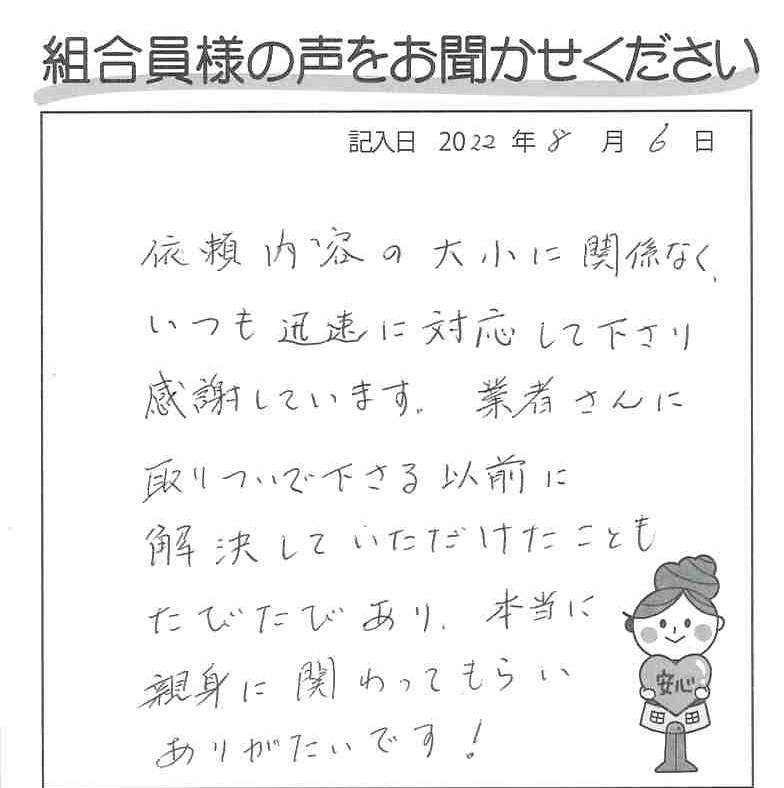 組合員様の声をお聞かせください
記入日 2022 年 8 月 6 日
依頼内容の大小に関係なく、
いつも迅速に対応して下さり
感謝しています。業者さんに
取りついで下さる以前に
解決していただけたことも
たびたびあり、本当に
親身に関わってもらい
ありがたいです!
安心